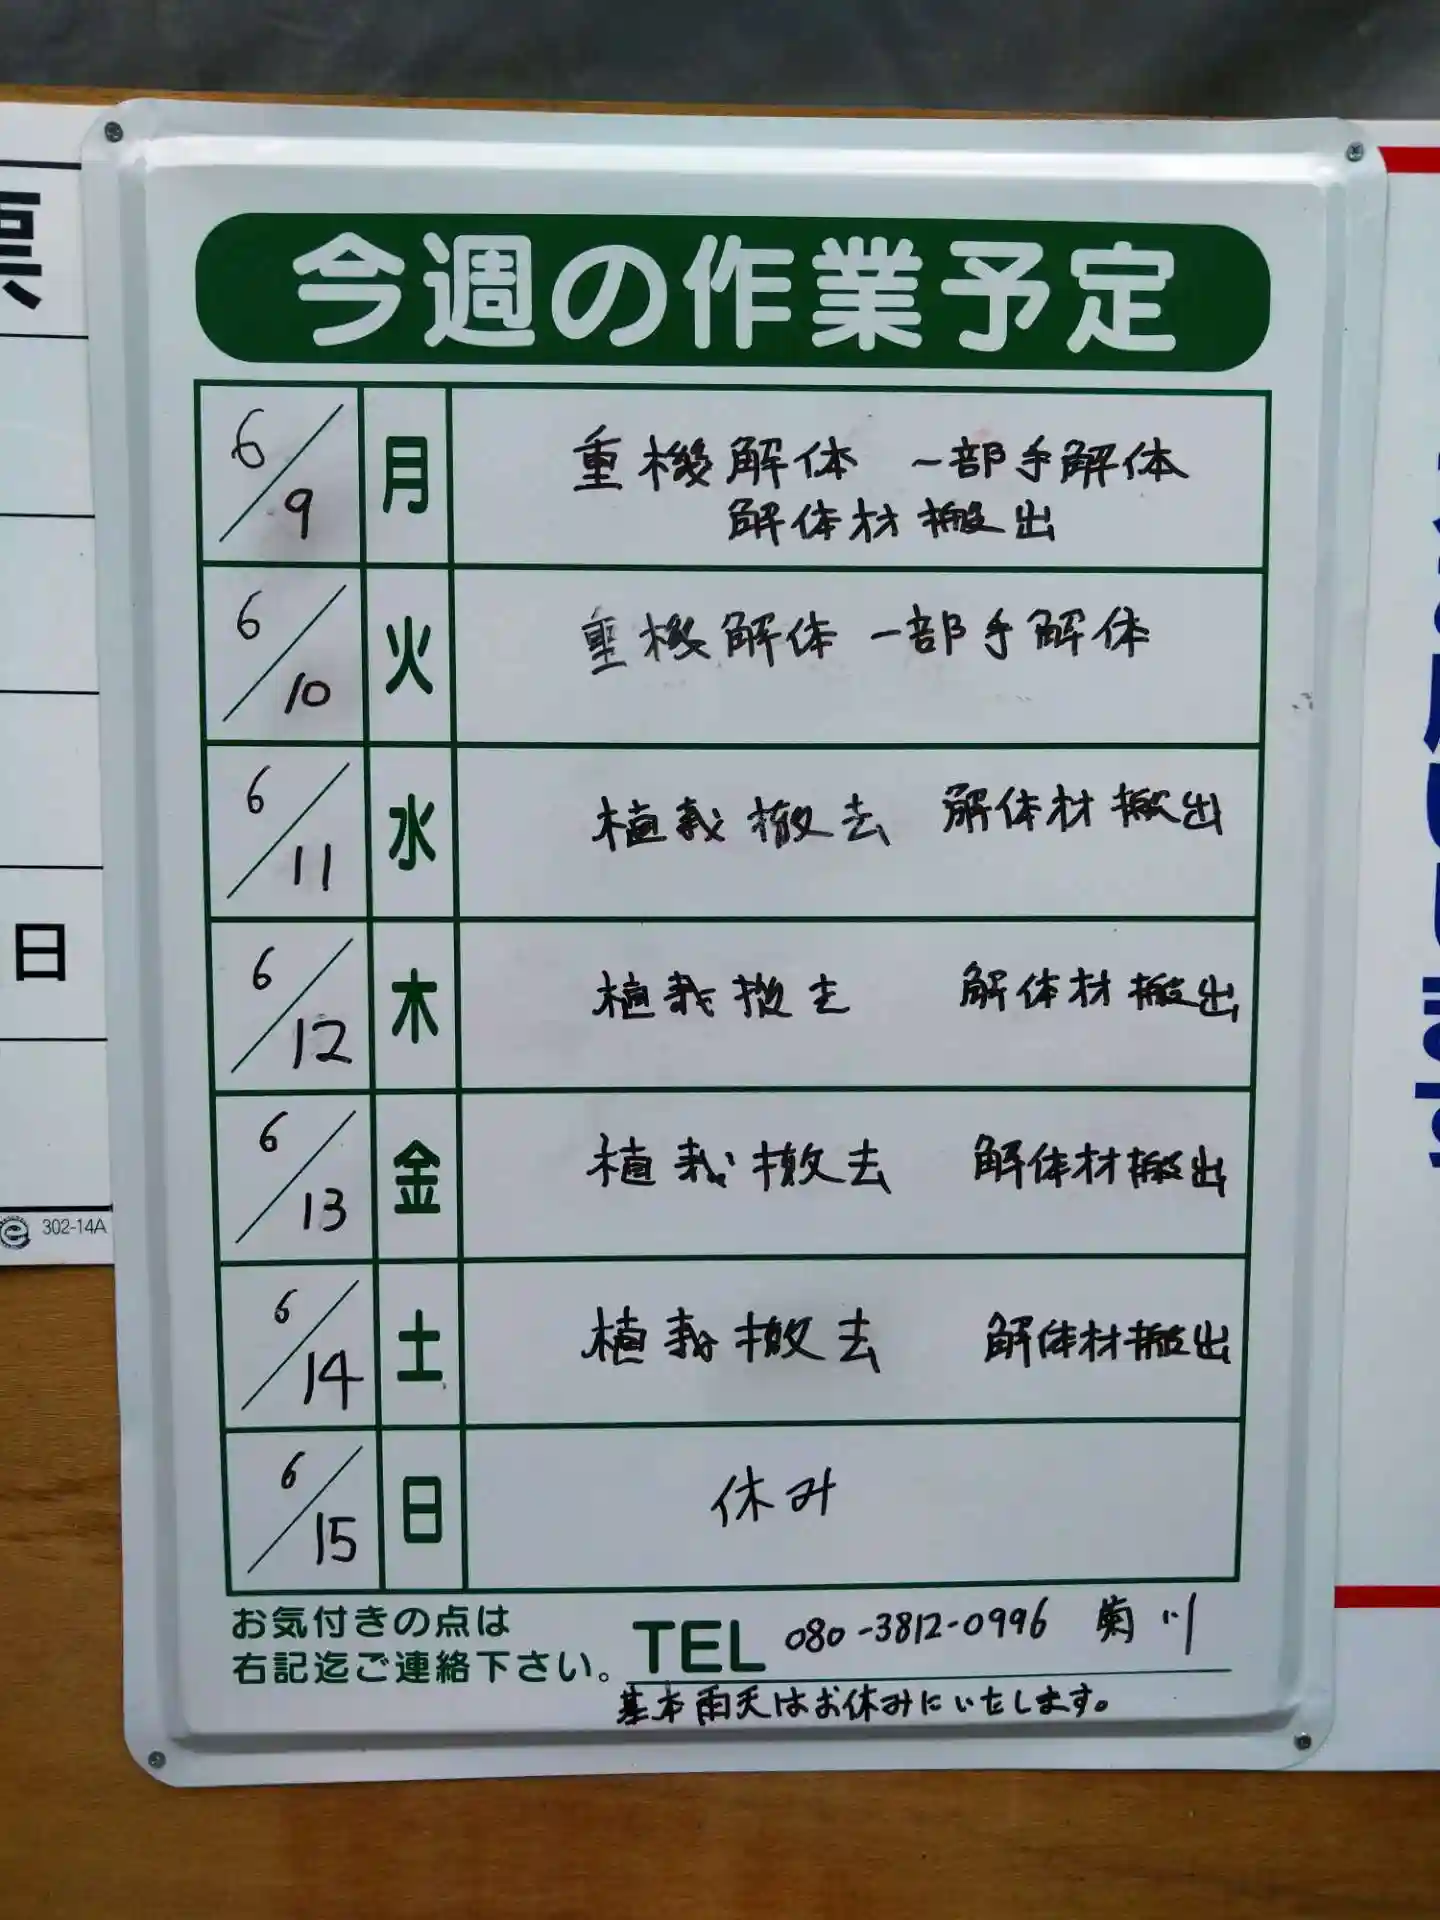 今週の作業予定
6/9 月 重機解体 一部手解体
解体材搬出
6/10 火 重機解体 一部手解体
6/11 水 植栽撤去 解体材搬出
6/12 木 植栽撤去 解体材搬出
6/13 金 植栽撤去 解体材搬出
6/14 土 植栽撤去 解体材搬出
6/15 日 休み
お気付きの点は
右記迄ご連絡下さい。
TEL 080-3812-0996 菊川
基本雨天はお休みにいたします。
票
日
302-14A